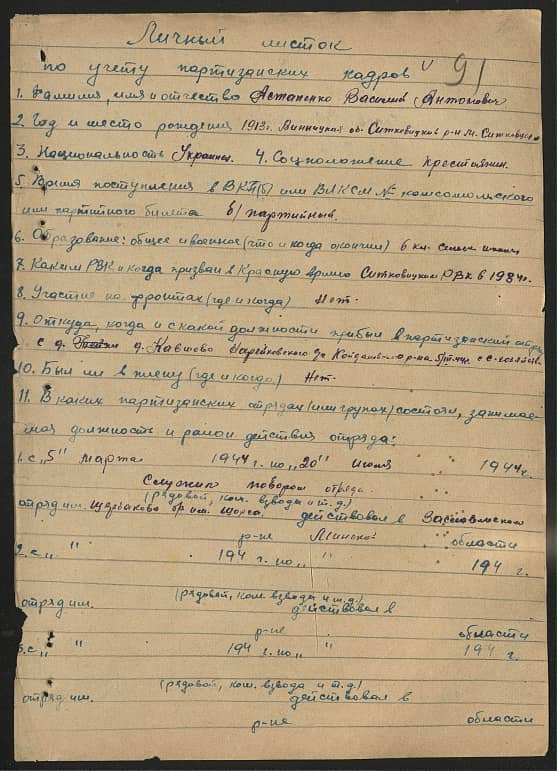 Личный листок
по учету партизанских кадров
91
1. Фамилия, имя и отчество Астапенко Василий Антонович
2. Год и место рождения 1913г. Винницкая об. Ситковецков р-н М. Ситковцы
3. Национальность Украинец. 4. Соцположение крестьянин.
5. Время поступления в ВКП(б) или ВЛКСМ № комсомольского
или партийного билета б/партийный.
6. Образование: общее и военное (что и когда окончил) 6 кл. школы
7. Каким РВК и когда призван в Красную армию Ситковицким РВК в 1934г.
8. Участие на фронтах (где и когда) Нет.
9. Откуда, когда и с какой должности прибыл в партизанский отряд
с д. д. р-на с с-хозяйства
10. Был ли в плену (где и когда) Нет.
11. В каких партизанских отрядах (или групах) состоял, занимае-
мая должность и район действия отряда:
1. с „5" марта 1944 г. по „20" июня 1944 г.
Служил поваром отряда
(рядовой, ком. взвода и т.д.)
отряд им. Щербакова бр им. Щорса. действовал в Заславльском
р-не Минской области
2. с „ " 194 г. по „ " 194 г.
(рядовой, ком. взвода и т.д.)
отряд им. действовал в
р-не области
3. с „ " 194 г. по „ " 194 г.
(рядовой, ком. взвода и т.д.)
отряд им. действовал в
р-не области